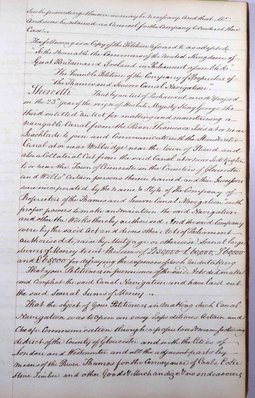 such proceedings thereon as may be necessary And that Mr
And
Case.
The following is a Copy of the Petition as adopted
To the Honorable the Commons of the United Kingdom of
Great Britain and Ireland in Parliament assembled
The Humble Petition of the Company of Proprietors of
the Thames and Severn Canal Navigation
Sheweth
That by an Act of Parliament made and passed
in the 23d year of the reign of His late Majesty King George the
third intituled an Act for making and maintaining a
Navigable Canal from the River Thames or Isis at or near
Lechlade to join and communicate with the Stroudwater
Canal at or near Wallbridge near the town of Stroud and
also a Collateral Cut from the said Canal at or near
to or near the Town of Cirencester in the Counties of Gloucester
and Wilts Certain persons therein named and their
were incorporated by the name & Style of the Company of
Proprietors of the Thames and Severn Canal Navigation with
proper powers to make and maintain the said Navigation
and other the Works thereby authorized And the said Company
were by the said Act and divers other Acts of Parliament
authorized to raise by Mortgage or otherwise several large
sums of Money
and for defraying the expenses of such undertaking
That your Petitioners in pursuance of the said Acts did make
and complete the said Canal Navigation and have laid out
the said several Sums of Money
That the object of your Petitioners in making such Canal
Navigation was to open an easy expeditious Certain and
Cheap Communication through a populous manufacturing
district of the County of Gloucester and with the Cities of
London and Westminster and all the adjacent parts by
means of the River Thames for the Conveyance of Coals Coke
Stone Timber and other Goods & Merchandize & to endeavour